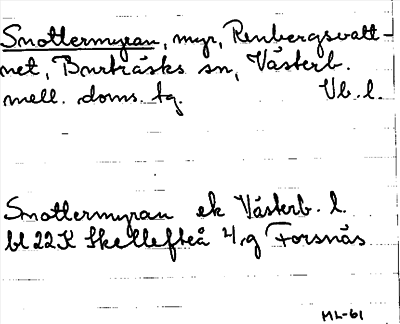 Snottermyran, myr, Renbergsvatt-
net, Burträsks sn, Västerb.
mell. doms. tg. Vb. l.
Snottermyran ek Västerb. l.
bl 22K Skellefteå 4,g Forsnäs
ML-61